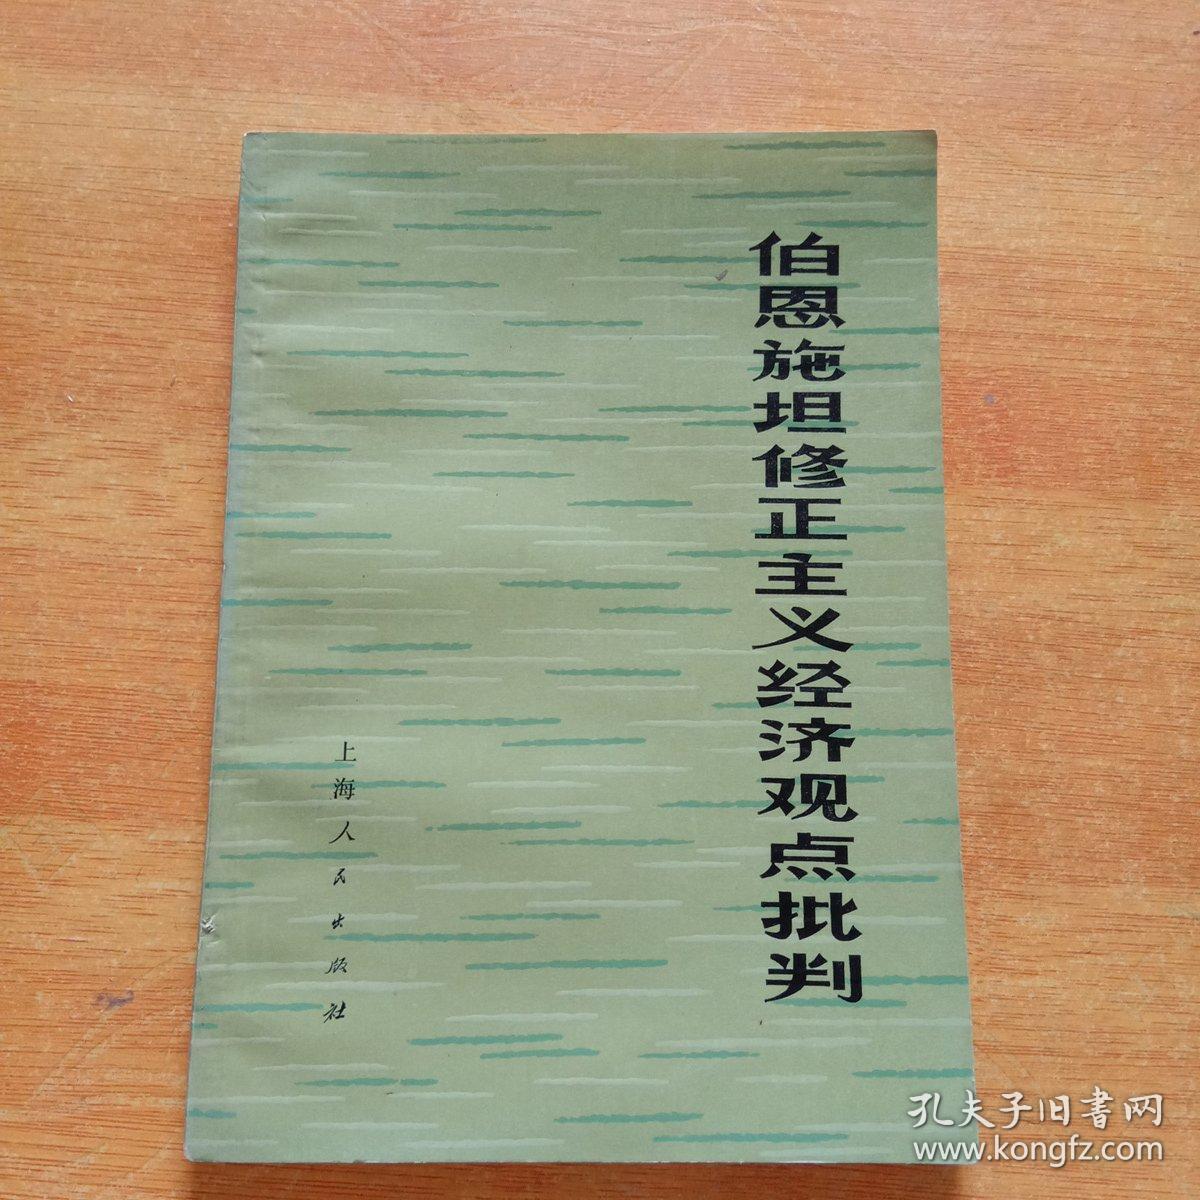 伯恩施坦修正主义经济观点批判
上海人民出版社
孔夫子旧書网
www.kongfz.com